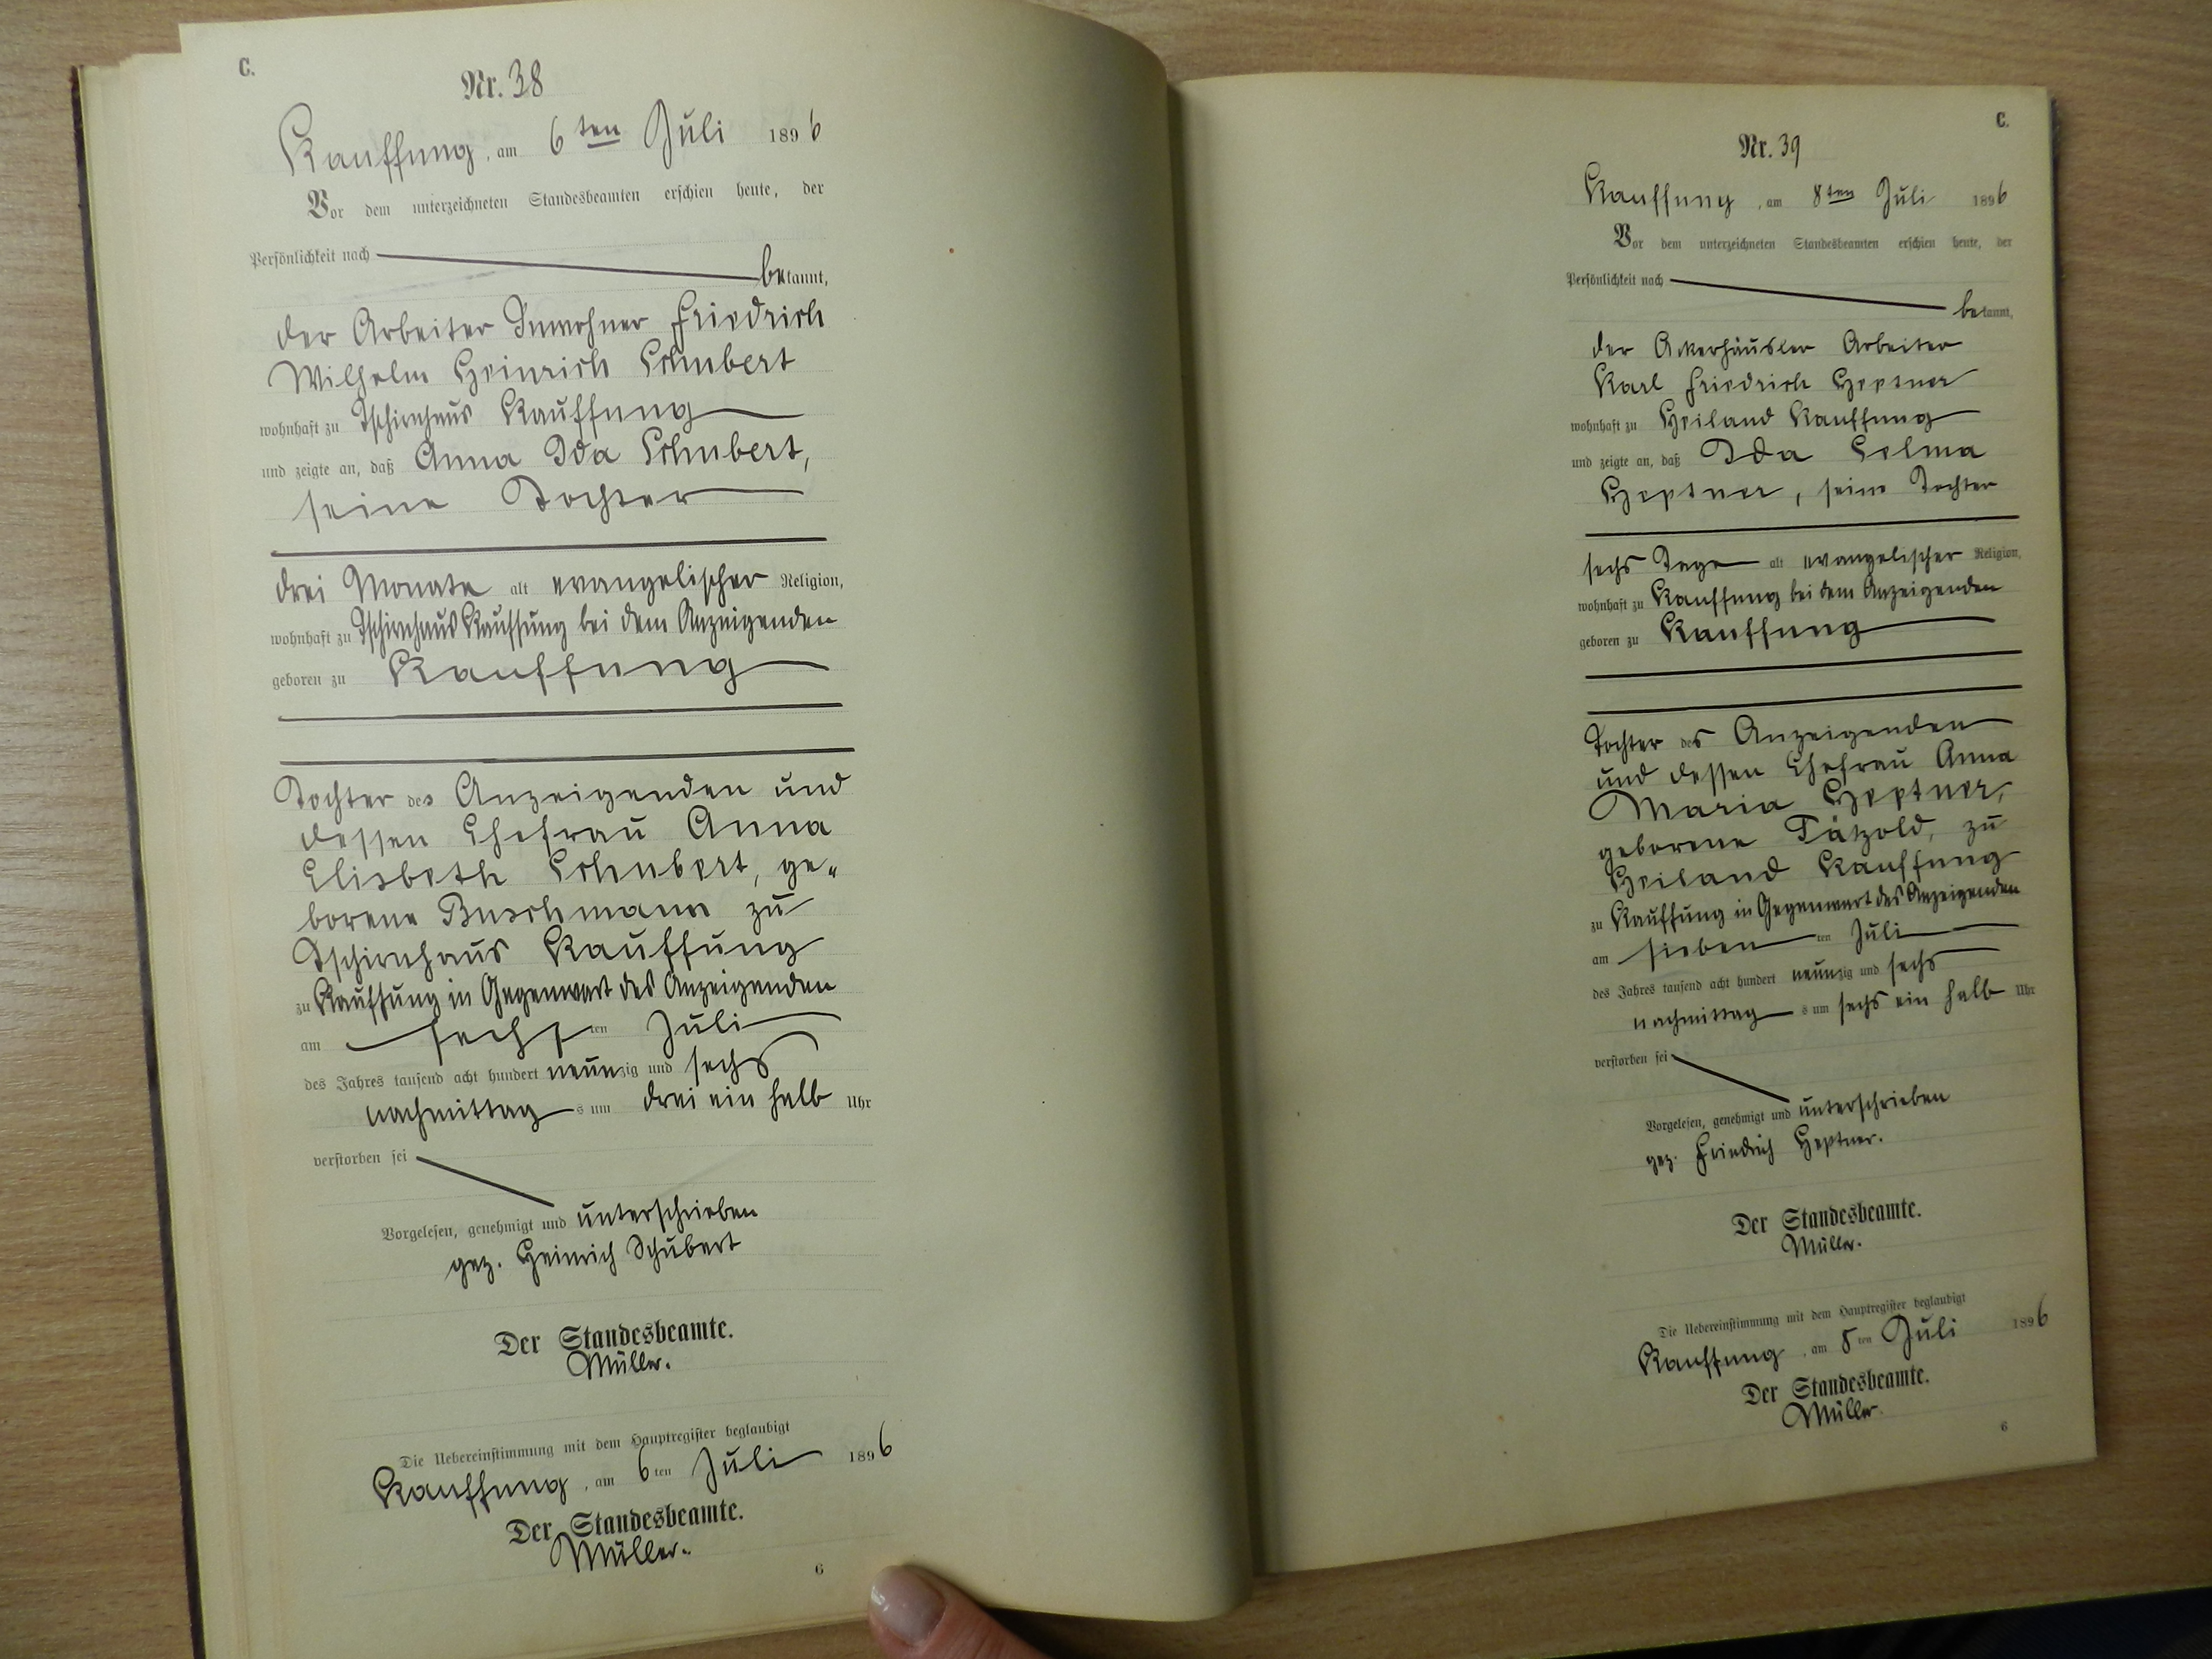 C.
Nr. 38
Kauffung, am 6ten Juli 1896
Vor dem unterzeichneten Standesbeamten erschien heute, der
Persönlichkeit nach
bekannt,
der Arbeiter Inwohner Friedrich
Wilhelm Heinrich Schubert
wohnhaft zu Tschirnhaus Kauffung
und zeigte an, daß Anna Ida Schubert,
seine Tochter
drei Monate alt evangelischer Religion,
wohnhaft zu Tschirnhaus Kauffung bei dem Anzeigenden
geboren zu Kauffung
Tochter des Anzeigenden und
dessen Ehefrau Anna
Elisbeth Schubert, ge-
borene Buschmann zu
Tschirnhaus Kauffung
zu Kauffung in Gegenwart des Anzeigenden
am sechsten Juli
des Jahres tausend acht hundert neunzig und sechs
nachmittags um drei ein halb Uhr
verstorben sei
Vorgelesen, genehmigt und unterschrieben
gez. Heinrich Schubert
Der Standesbeamte.
Müller.
Die Uebereinstimmung mit dem Hauptregister beglaubigt
Kauffung, am 6ten Juli 1896
Der Standesbeamte.
Müller.
6
C.
Nr. 39
Kauffung, am 8ten Juli 1896
Vor dem unterzeichneten Standesbeamten erschien heute, der
Persönlichkeit nach
bekannt,
der Ackerhäusler Arbeiter
Karl Friedrich Heptner
wohnhaft zu Heiland Kauffung
und zeigte an, daß Ida Selma
Heptner, seine Tochter
sechs Tage alt evangelischer Religion,
wohnhaft zu Kauffung bei dem Anzeigenden
geboren zu Kauffung
Tochter des Anzeigenden
und dessen Ehefrau Anna
Maria Heptner,
geborene Pätzold, zu
Heiland Kauffung
zu Kauffung in Gegenwart des Anzeigenden
am siebenten Juli
des Jahres tausend acht hundert neunzig und sechs
nachmittags um sechs ein halb Uhr
verstorben sei
Vorgelesen, genehmigt und unterschrieben
gez. Friedrich Heptner.
Der Standesbeamte.
Müller.
Die Uebereinstimmung mit dem Hauptregister beglaubigt
Kauffung, am 8ten Juli 1896
Der Standesbeamte.
Müller.
6